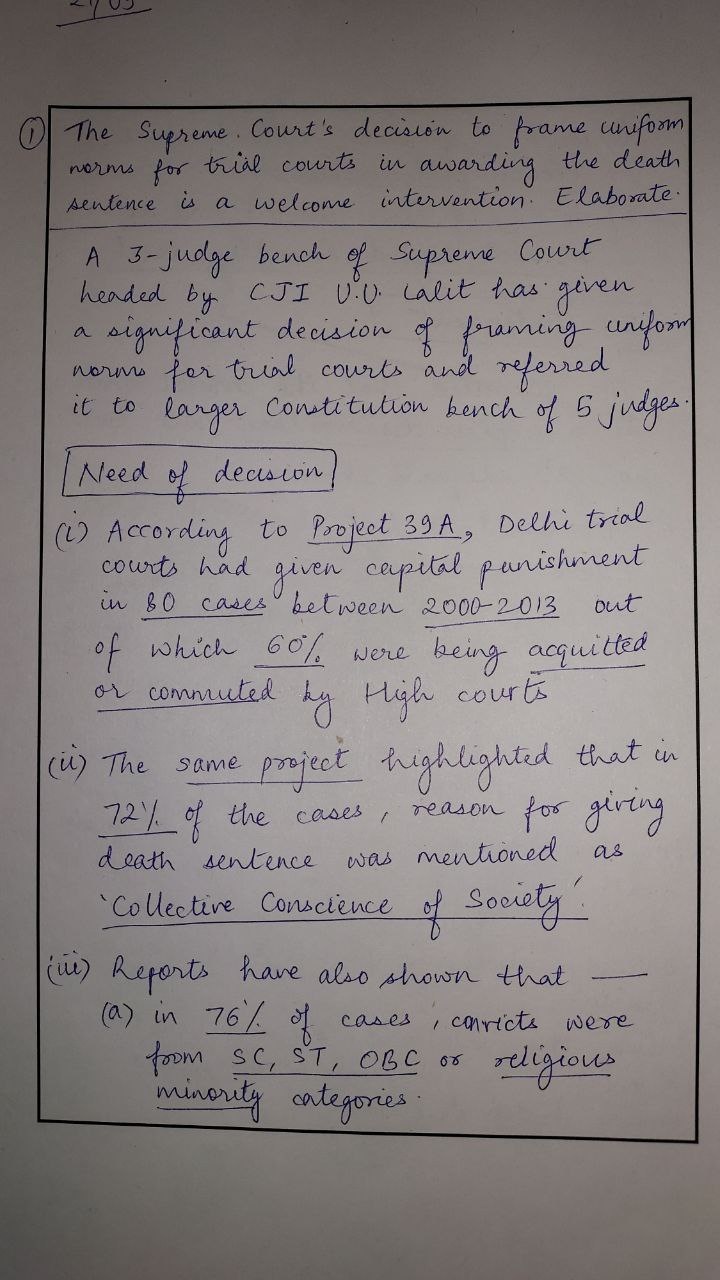 21/09
① The Supreme Court's decision to frame uniform
norms for trial courts in awarding the death
sentence is a welcome intervention. Elaborate.
A 3-judge bench of Supreme Court
headed by CJI U.U. Lalit has given
a significant decision of framing uniform
norms for trial courts and referred
it to larger Constitution bench of 5 judges.
Need of decision
(i) According to Project 39A, Delhi trial
courts had given capital punishment
in 80 cases between 2000-2013 out
of which 60% were being acquitted
or commuted by High courts
(ii) The same project highlighted that in
72% of the cases, reason for giving
death sentence was mentioned as
'Collective Conscience of Society'.
(iii) Reports have also shown that —
(a) in 76% of cases, convicts were
from SC, ST, OBC or religious
minority categories.